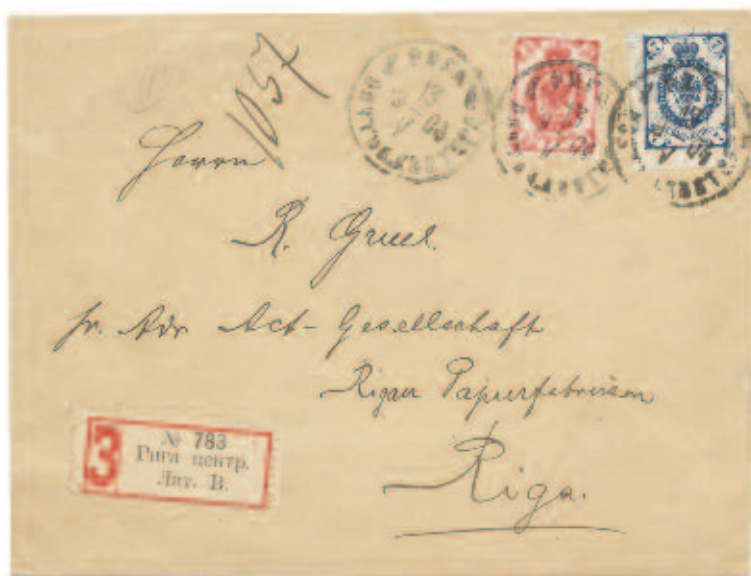 1057
РИГА
13
V
04
Herrn
R. Gruel.
pr. Adr Act-Gesellschaft
Rigaer Papierfabriken
Riga.
3
№ 783
Рига центр.
Лит. В.
7
7